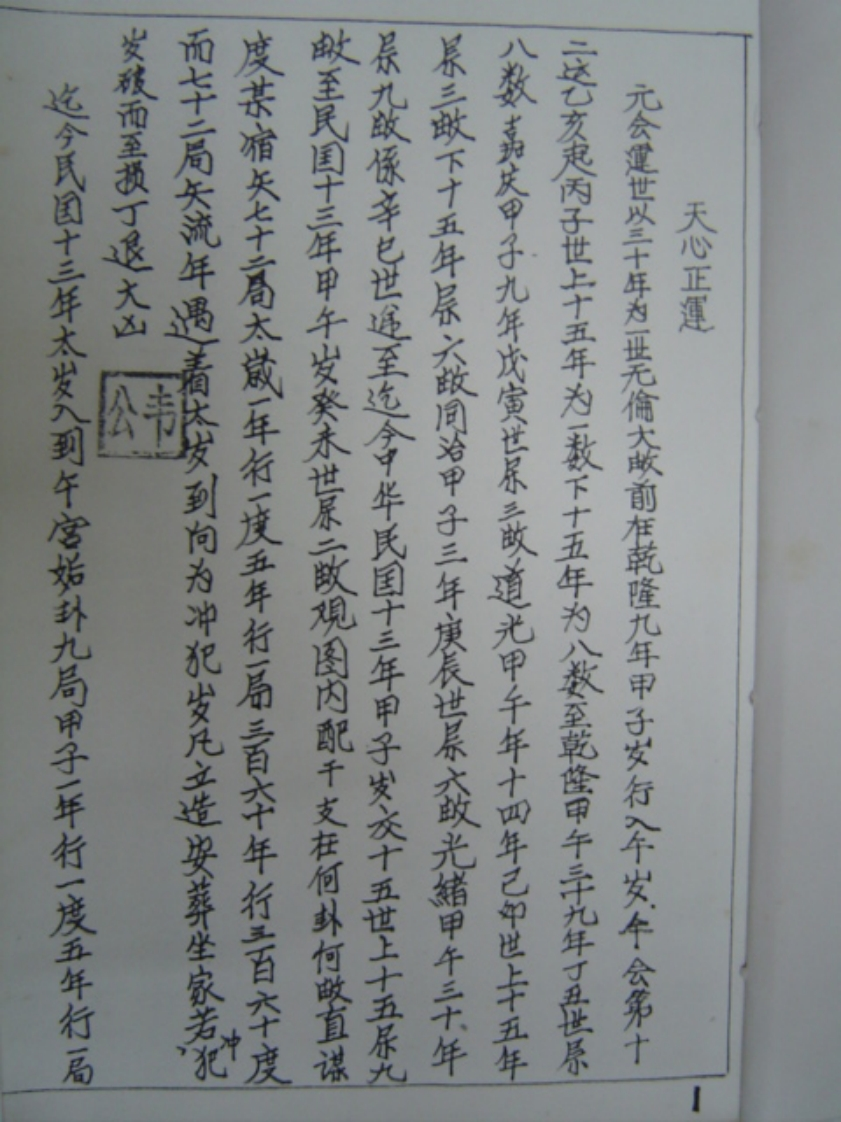 天心正運
元会運世以三十年为一世无倫大畝前在乾隆九年甲子岁行入午岁午会第十
二这乙亥起丙子世上十五年为一数下十五年为八数至乾隆甲午三十九年丁丑世屌
八数嘉庆甲子九年戊寅世屌三畝道光甲午年十四年己卯世上十五年
屌三畝下十五年屌六畝同治甲子三年庚辰世屌六畝光緒甲午三十年
屌九畝係辛巳世递至迄今中华民国十三年甲子岁交十五世上十五屌九
畝至民国十三年甲午岁癸未世屌二畝观图内配干支在何卦何畝直谋
度某宿矢七十二局太歲一年行一度五年行一局三百六十年行三百六十度
而七十二局矢流年遇着太岁到向为冲犯岁凡立造安葬坐家若冲犯
岁破而至损丁退大凶
韦公
迄今民国十三年太岁入到午宮姤卦九局甲子一年行一度五年行一局
1